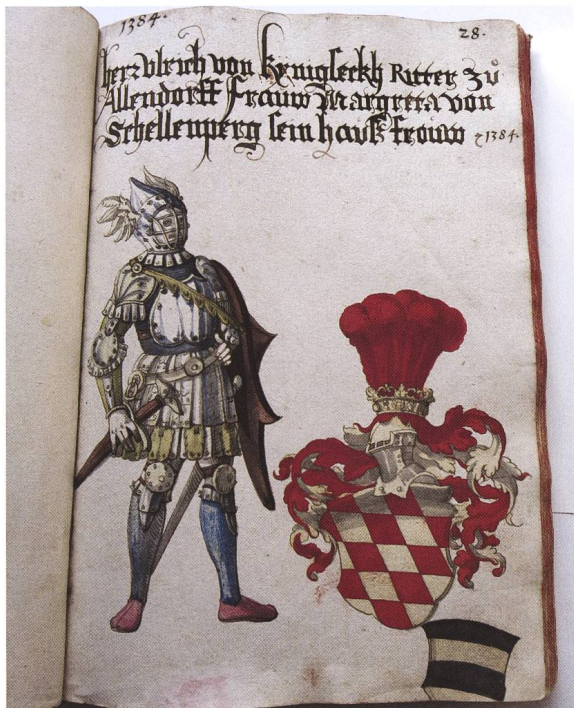 1384.
28.
herz vlrich von kynigseckh Ritter zů
Allendorff frauw Margreta von
Schellenperg sein hauß frouw 1384.